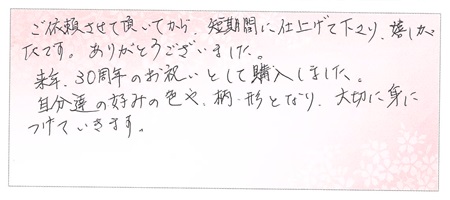 ご依頼させて頂いてから、短期間に仕上げて下さり、嬉しかった
たです。ありがとうございました。
来年、30周年のお祝いとして購入しました。
自分達の好みの色や、柄・形となり、大切に身に
つけていきます。